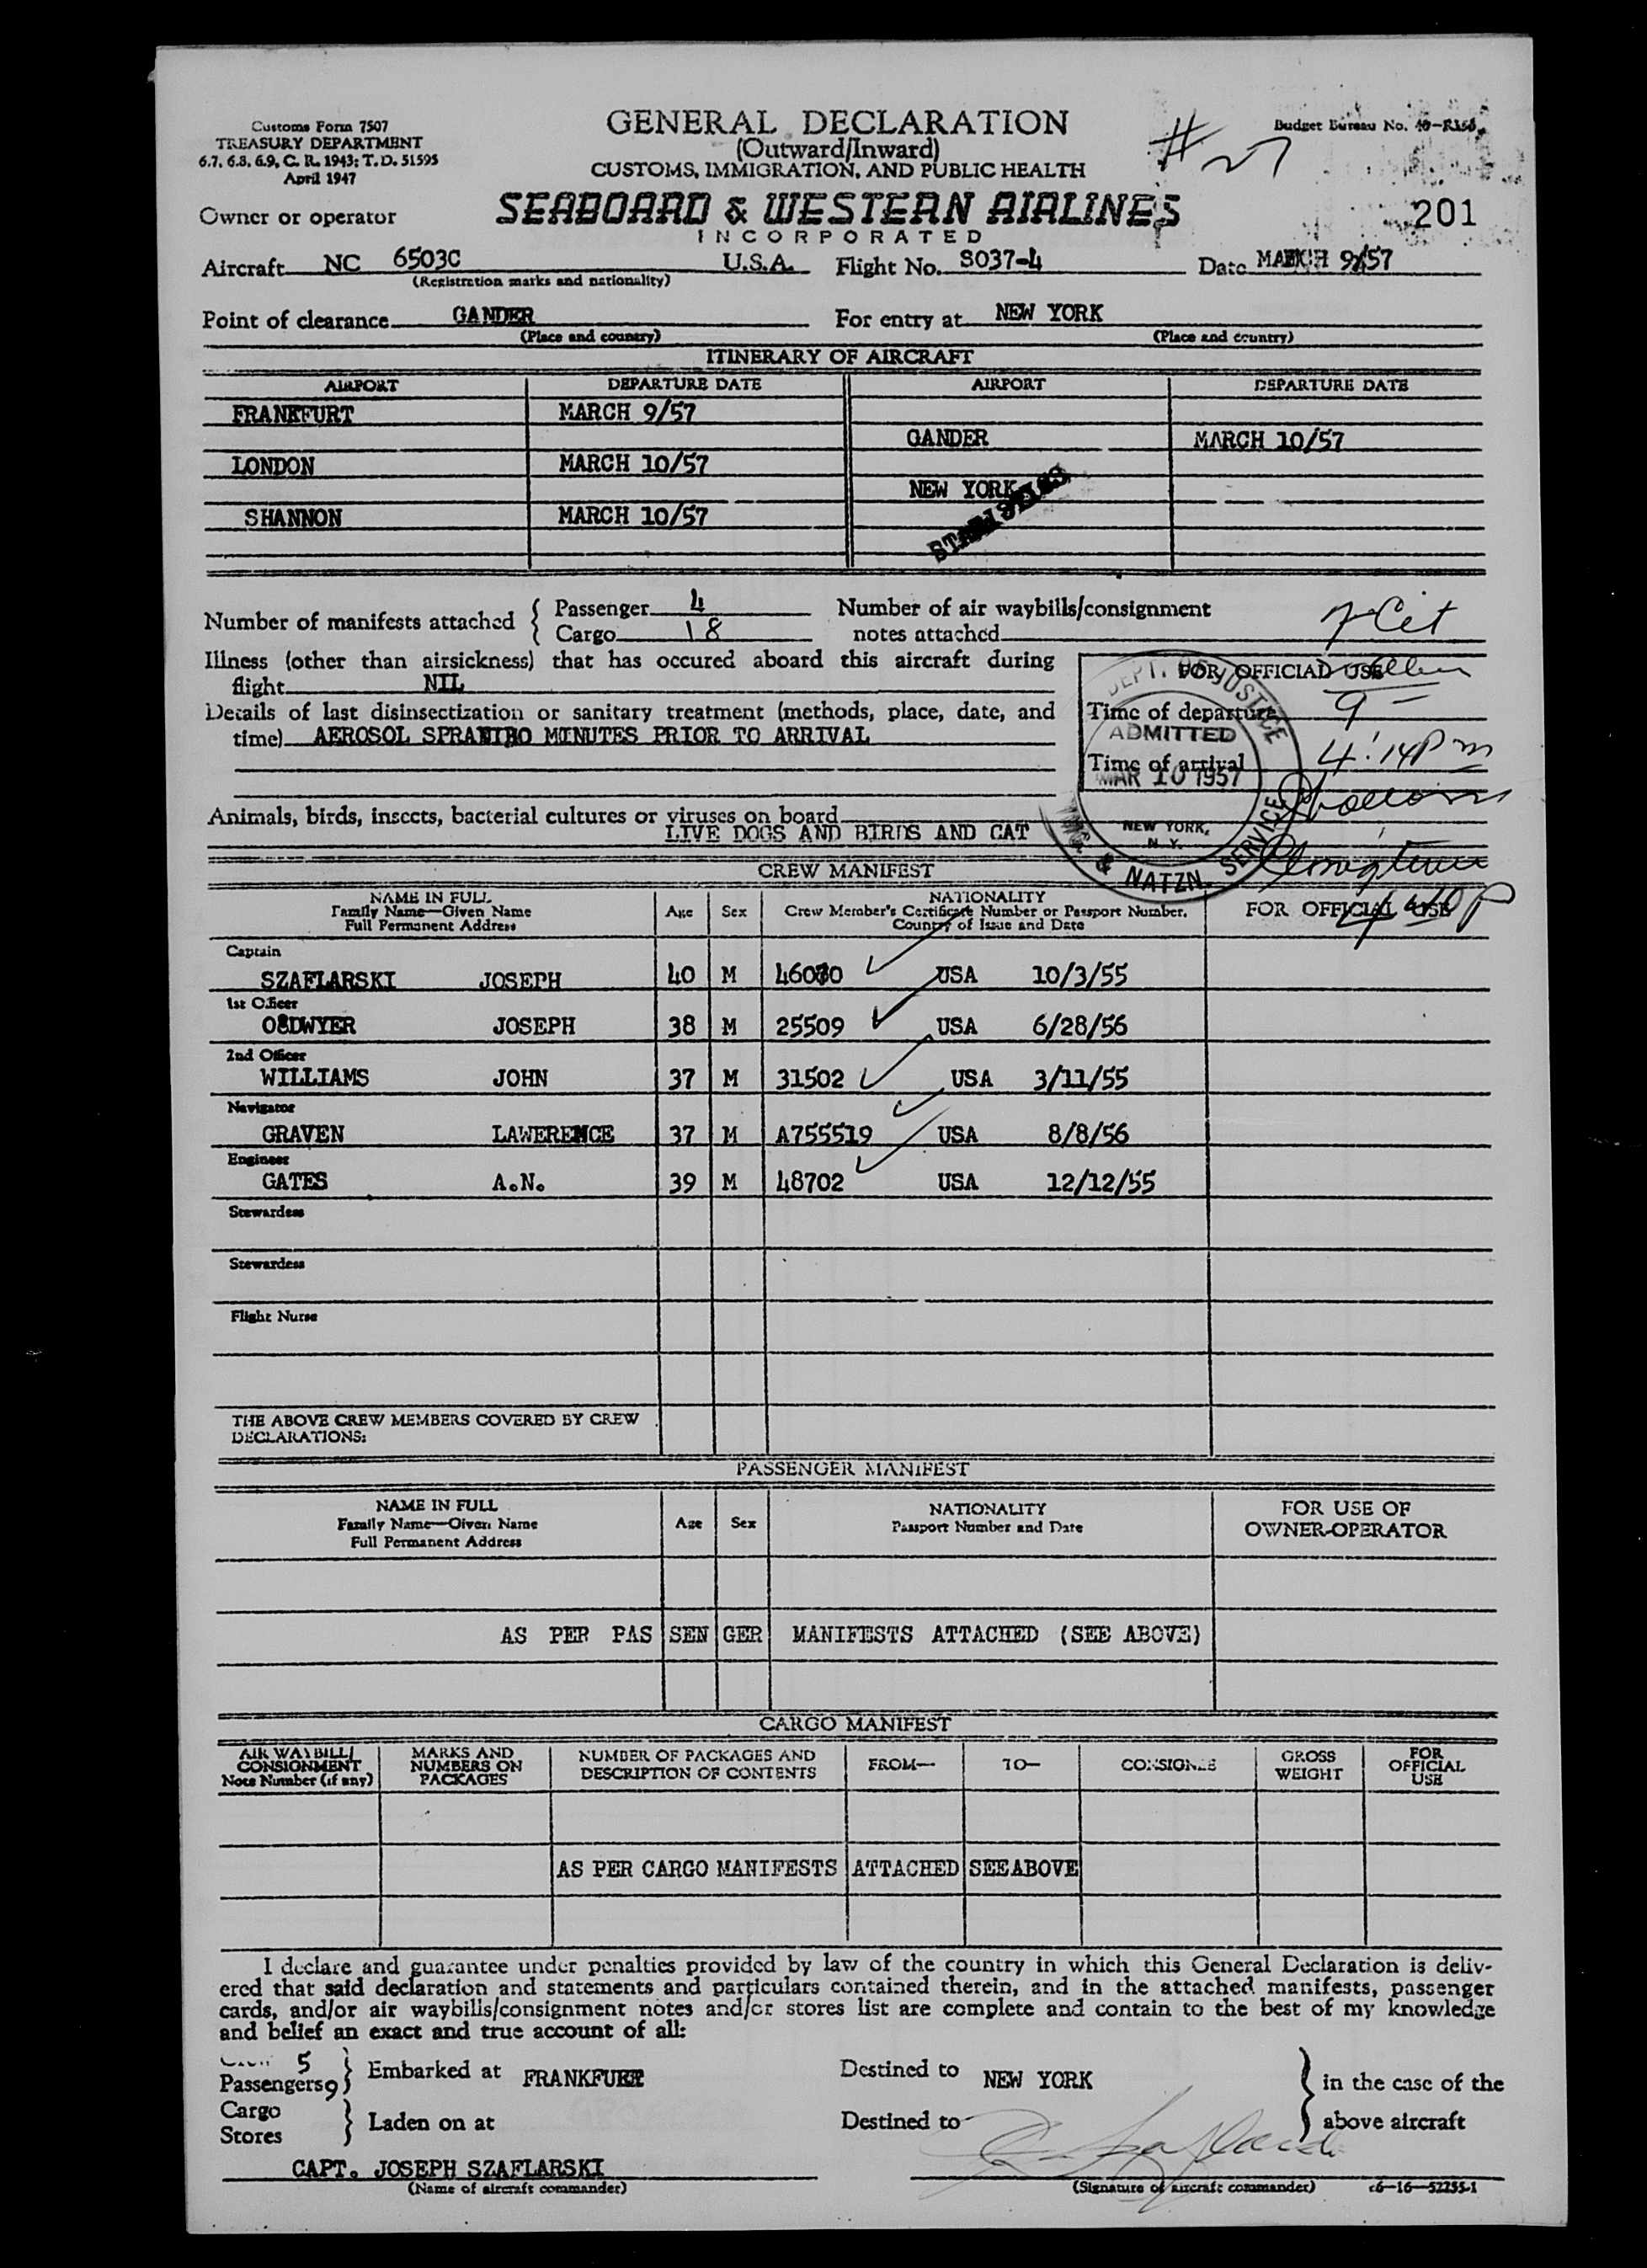 Customs Form 7507
TREASURY DEPARTMENT
6.7, 6.8, 6.9, C. R. 1943; T. D. 51595
April 1947
GENERAL DECLARATION
(Outward/Inward)
CUSTOMS, IMMIGRATION, AND PUBLIC HEALTH
Budget Bureau No.
#27
Owner or operator
SEABOARD & WESTERN AIRLINES
INCORPORATED
201
Aircraft NC 6503C U.S.A. Flight No. S037-4 Date MARCH 9/57
(Registration marks and nationality)
Point of clearance GANDER For entry at NEW YORK
(Place and country) (Place and country)
ITINERARY OF AIRCRAFT
AIRPORT DEPARTURE DATE AIRPORT DEPARTURE DATE
FRANKFURT MARCH 9/57
GANDER MARCH 10/57
LONDON MARCH 10/57
NEW YORK
SHANNON MARCH 10/57
STATISTICS
Number of manifests attached { Passenger 4
Cargo 18
Number of air waybills/consignment
notes attached
Illness (other than airsickness) that has occured aboard this aircraft during
flight NIL
Details of last disinsectization or sanitary treatment (methods, place, date, and
time) AEROSOL MINUTES PRIOR TO ARRIVAL
FOR OFFICIAL USE
Time of departure 9 -
Time of arrival 4:14 Pm
DEPT. OF JUSTICE
ADMITTED
MAR 10 1957
NEW YORK,
N. Y.
IMM. & NATZN. SERVICE
4 40 P
Animals, birds, insects, bacterial cultures or viruses on board
LIVE DOGS AND BIRDS AND CAT
CREW MANIFEST
NAME IN FULL
Family Name—Given Name
Full Permanent Address
Age Sex
NATIONALITY
Crew Member's Certificate Number or Passport Number,
Country of Issue and Date
FOR OFFICIAL USE
Captain
SZAFLARSKI JOSEPH 40 M USA 10/3/55
1st Officer
JOSEPH 38 M 25509 USA 6/28/56
2nd Officer
WILLIAMS JOHN 37 M 31502 USA 3/11/55
Navigator
GRAVEN LAWERENCE 37 M A755519 USA 8/8/56
Engineer
GATES A.N. 39 M 48702 USA 12/12/55
Stewardess
Stewardess
Flight Nurse
THE ABOVE CREW MEMBERS COVERED BY CREW
DECLARATIONS:
PASSENGER MANIFEST
NAME IN FULL
Family Name—Given Name
Full Permanent Address
Age Sex
NATIONALITY
Passport Number and Date
FOR USE OF
OWNER-OPERATOR
AS PER PAS SEN GER MANIFESTS ATTACHED (SEE ABOVE)
CARGO MANIFEST
AIR WAYBILL/
CONSIGNMENT
Note Number (if any)
MARKS AND
NUMBERS ON
PACKAGES
NUMBER OF PACKAGES AND
DESCRIPTION OF CONTENTS
FROM— TO— CONSIGNEE
GROSS
WEIGHT
FOR
OFFICIAL
USE
AS PER CARGO MANIFESTS ATTACHED SEE ABOVE
I declare and guarantee under penalties provided by law of the country in which this General Declaration is deliv-
ered that said declaration and statements and particulars contained therein, and in the attached manifests, passenger
cards, and/or air waybills/consignment notes and/or stores list are complete and contain to the best of my knowledge
and belief an exact and true account of all:
Crew 5
Passengers 9 } Embarked at FRANKFURT Destined to NEW YORK } in the case of the
Cargo
Stores } Laden on at Destined to above aircraft
CAPT. JOSEPH SZAFLARSKI
(Name of aircraft commander) (Signature of aircraft commander) c6—16—52255-1